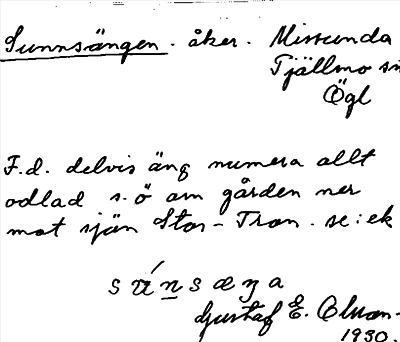 Sunnsängen. åker. Misterinda
Tjällmo sn
Ögl
F.d. delvis äng numera allt
odlad s.ö om gården ner
mot sjön Stor-Tron. se: ek
Gustaf E.
1930.